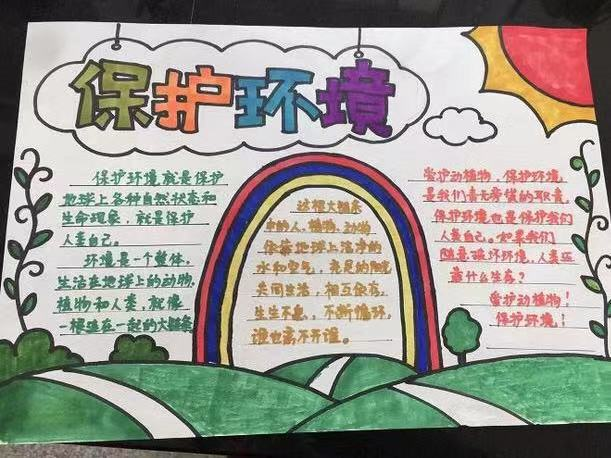 保护环境
保护环境就是保护
地球上各种自然状态和
生命现象，就是保护
人类自己。
环境是一个整体，
生活在地球上的动物，
植物和人类，就像
一根连在一起的大链条
这根大链条
中的人、植物、动物
依靠地球上洁净的
水和空气，充足的阳光
共同生活，相互依存，
生生不息，不断循环，
谁也离不开谁。
爱护动植物，保护环境
是我们责无旁贷的职责，
保护环境也是保护我们
人类自己。如果我们
随意破坏环境，人类应
靠什么生存？
爱护动植物！
保护环境！